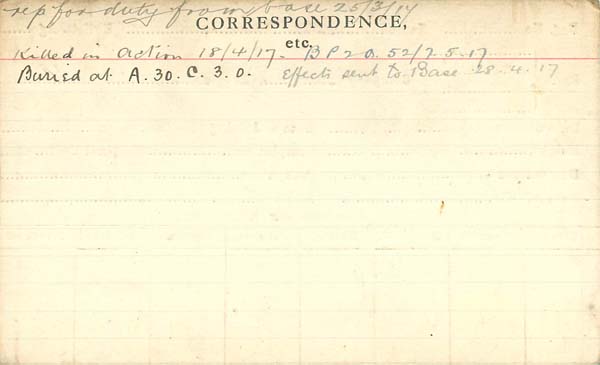 rep for duty from base 25/3/17
CORRESPONDENCE,
etc.
Killed in action 18/4/17. B P 2 O. 52/7.5.17
Buried at A.30.C.3.0. Effects sent to Base 28.4.17